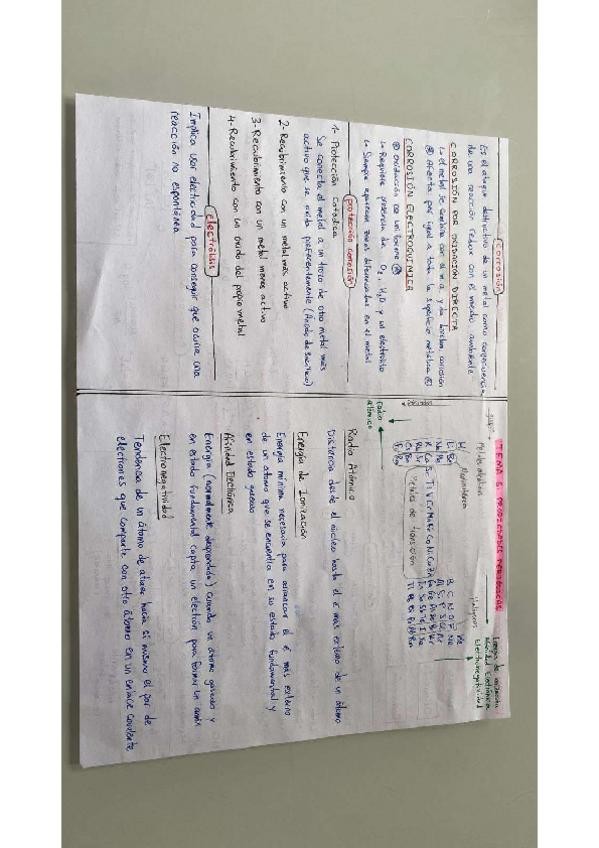 corrosión
Es el ataque destructivo de un metal como consecuencia
de una reacción redox con el medio ambiente
CORROSIÓN POR OXIDACIÓN DIRECTA
↳ el metal se combina con el
Afecta por igual a toda la superficie metálica
CORROSIÓN ELECTROQUÍMICA
↳ Requiere presencia de O₂, H₂O y un electrolito
↳ Siempre aparecen zonas diferenciadas en el metal
protección corrosión
1- Protección Catódica
Se conecta el metal a un trozo de otro metal más
activo que se oxida preferentemente (Ánodo de sacrificio)
2- Recubrimiento con un metal más activo
3- Recubrimiento con un metal menos activo
4- Recubrimiento con un oxido del propio metal
electrólisis
Implica usar electricidad para conseguir que ocurra una
reacción no espontánea
TEMA 5: PROPIEDADES PERIÓDICAS
Energía de ionización
Afinidad Electrónica
Electronegatividad
grupo
Metales alcalinos
Halógenos
H
Li Be
B C N O F Ne
Na Mg
Al Si P S Cl Ar
K Ca Sc Ti V Cr Mn Fe Co Ni Cu Zn Ga Ge As Se Br Kr
Rb Sr
In Sn Sb Te I Xe
Cs Ba
Tl Pb Bi Po At Rn
Metales de transición
periodos
radio
atómico
Radio Atómico
Distancia desde el núcleo hasta el e⁻ más externo de un átomo
Energía de Ionización
Energía mínima necesaria para arrancar el e⁻ más externo
de un átomo que se encuentra en su estado fundamental y
en estado gaseoso
Afinidad Electrónica
Energía (normalmente desprendida) cuando un átomo gaseoso y
en estado fundamental capta un electrón para formar un
Electronegatividad
Tendencia de un átomo de atraer hacia si mismo el par de
electrones que comparte con otro átomo en un enlace covalente